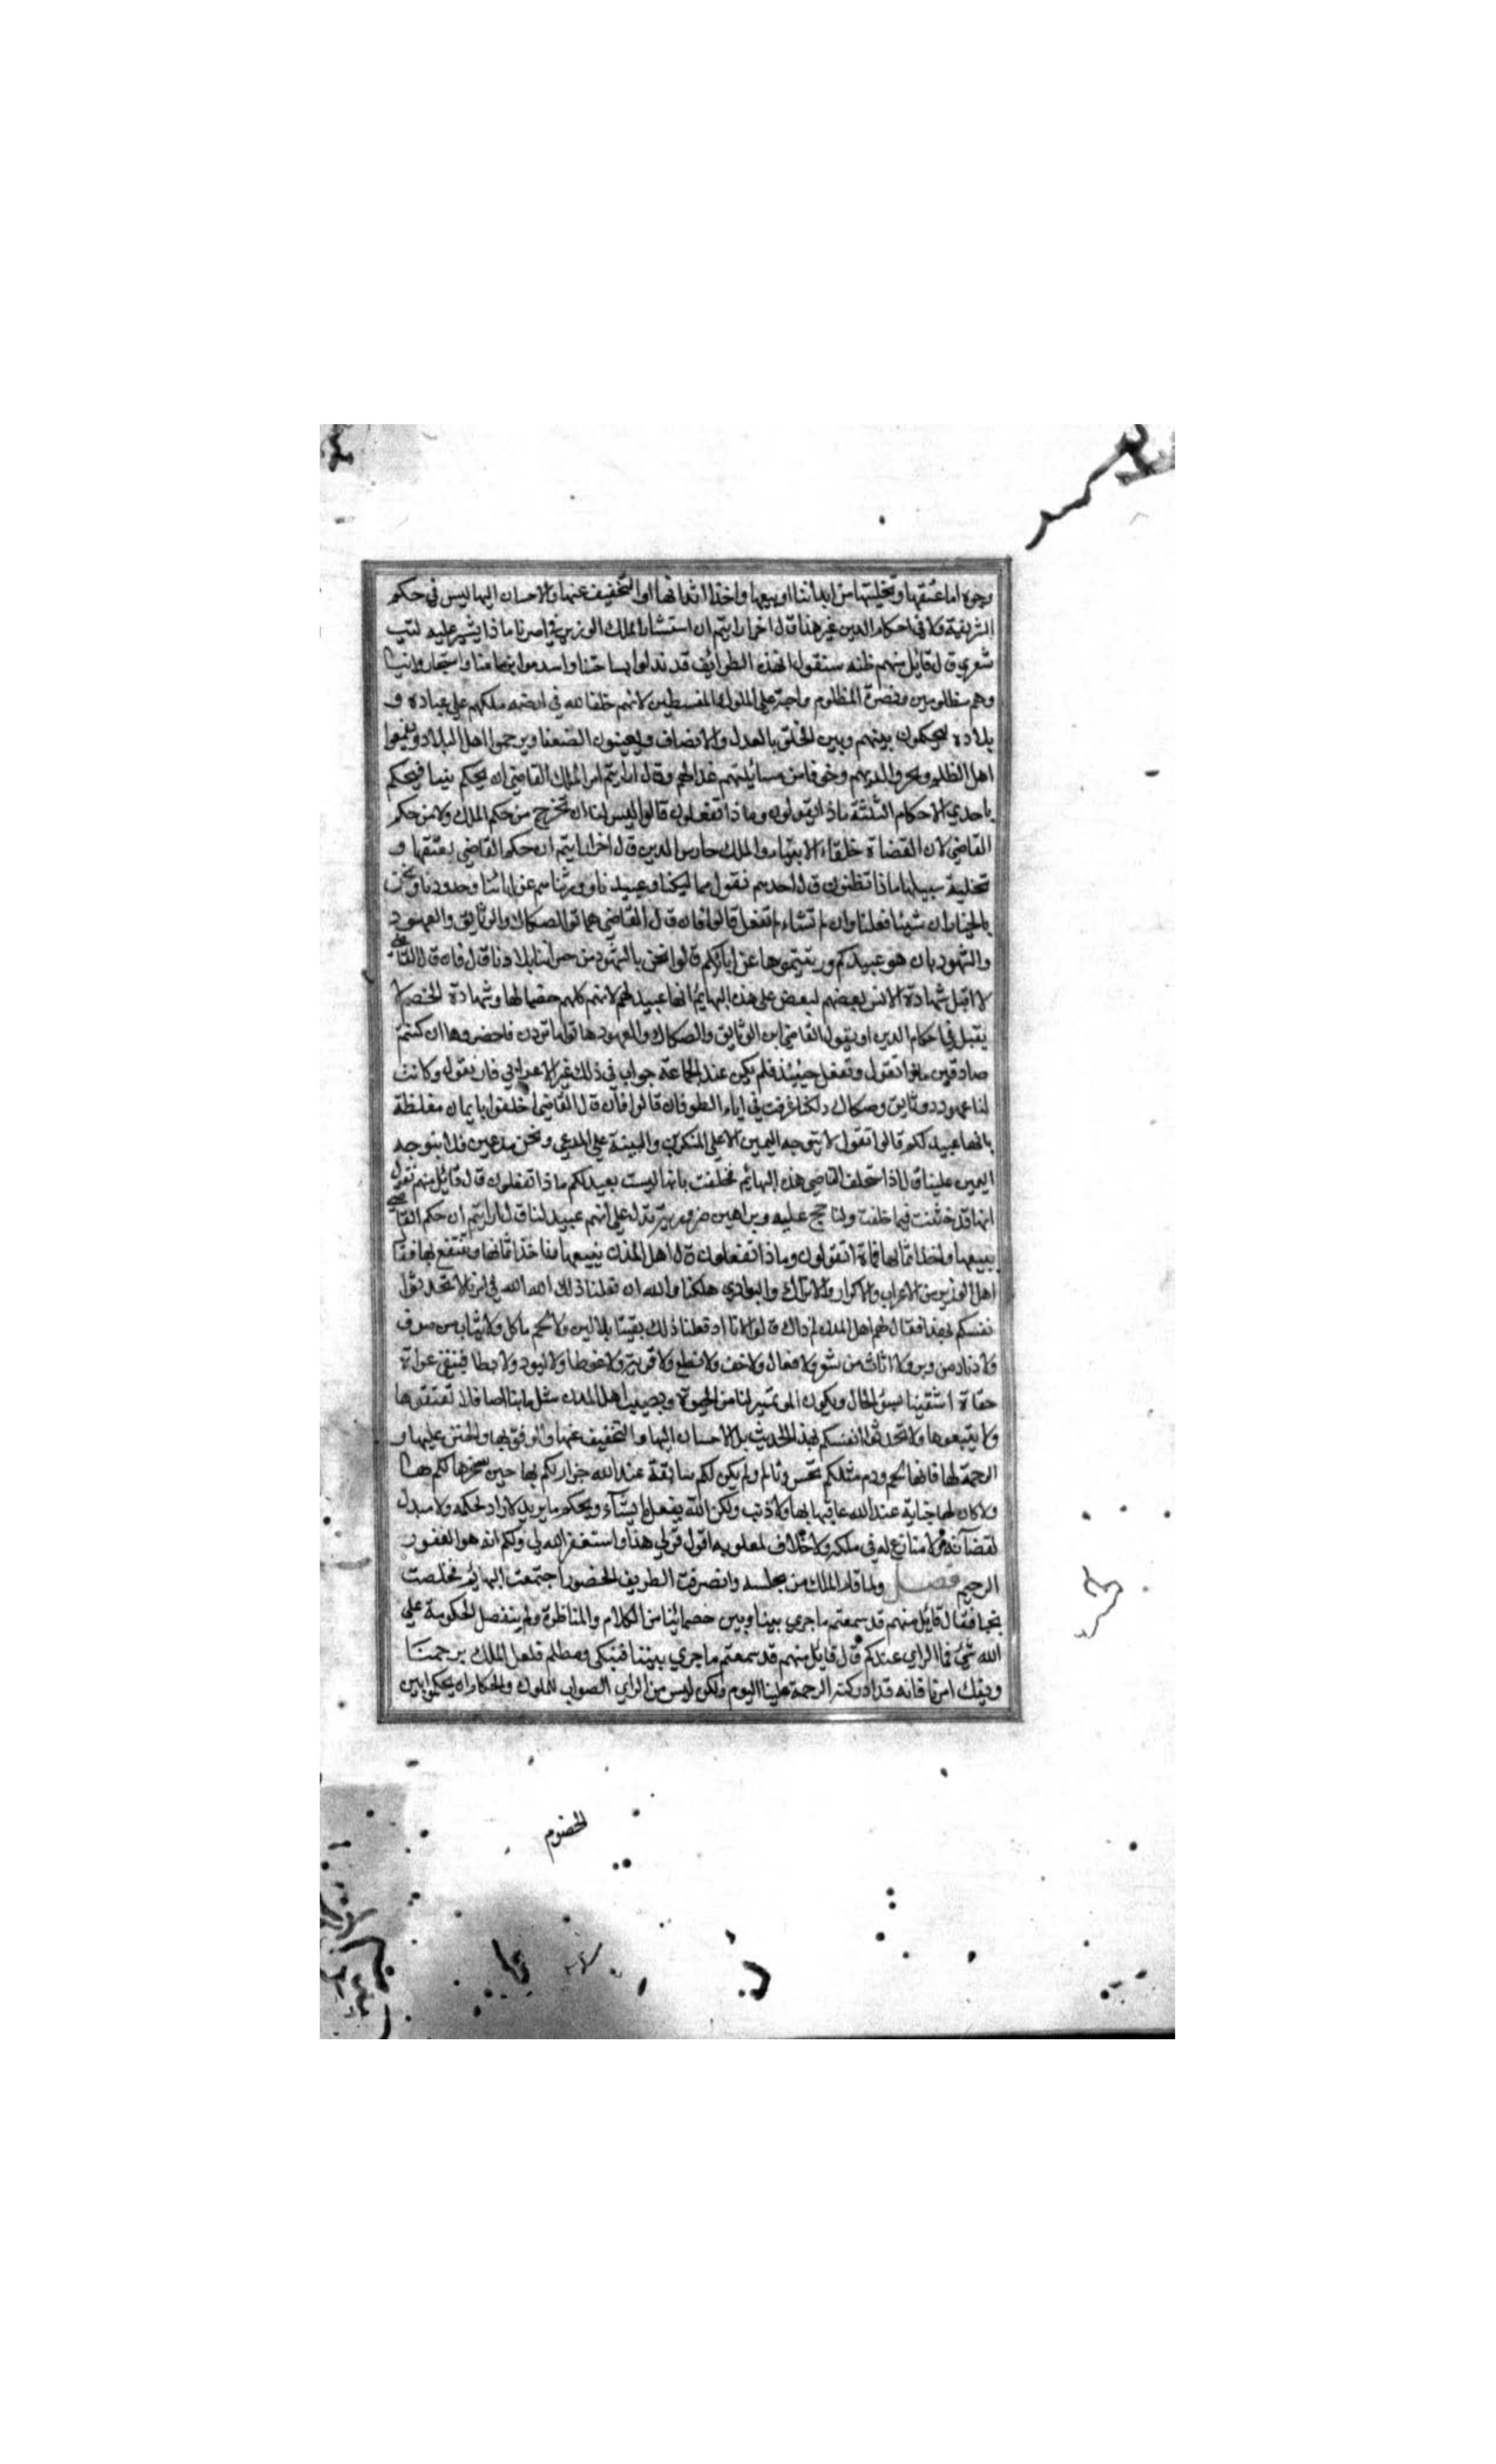 وجوه اما عتقها وتخليتها من ايداننا او بيعها واخذ اثمانها او التخفيف عنها والاحسان اليها ليس في حكم
الشريفة ولا في احكام الدين غير هذا قال اخر ارايتم ان استشار الملك الوزير في امرنا ماذا يشير عليه ليت
شعري قال قايل منهم ظنه سنقول ان هذه الطوايف قد نزلوا بساحتنا واستجاروا بنا
وهم مظلومين ونصرة المظلوم واجبة على الملوك المقسطين لانهم خلفا لله في ارضه ملكهم على عباده و
بلاده ليحكمون بينهم وبين الخلق بالعدل والانصاف ويعينون الضعفا ويرحموا اهل البلاد ويقمعوا
اهل الظلم وقال ارايتم امر الملك القاضي ان يحكم بيننا فيحكم
باحدي الاحكام الثلثة ماذا تقولون وما ذا تفعلون قالوا ليس لنا ان نخرج من حكم الملك ولا من حكم
القاضي لان القضاة خلفاء الانبياء والملك حارس الدين قال اخر ارايتم ان حكم القاضي بعتقها و
تخلية سبيلها ماذا تظنون قال احدهم نقول مماليكنا وعبيدنا وورثناهم عن ابائنا وجدودنا ونحن
بالخيار ان شينا فعلنا وان لم نشاء لم نفعل قالوا فان قال القاضي هاتوا الصكاك والوثايق والعهود
والشهود بان هو عبيدكم ورثتموها عن ابائكم قالوا نحن بالشهود من جيراننا بلادنا قال فان قال القاضي
لا اقبل شهادة الانس بعضهم لبعض على هذه البهايم انها عبيد لهم لانهم كلهم خصما لها وشهادة الخصم لا
يقبل في احكام الدين او يقول القاضي اين الوثايق والصكاك والعهود هاتوا ما تردن فاحضروها ان كنتم
صادقين ماذا نقول ونفعل حينئذ فلم يكن عند الجماعة جواب في ذلك غير الاعرابي قال نقول وكانت
لنا عهود ووثايق وصكاك ولكنا غرقت في ايام الطوفان قالوا فان قال القاضي احلفوا بايمان مغلظة
بانها عبيد لكم قالوا نقول لا يتوجه اليمين الا على المنكرين والبينة على المدعي ونحن مدعين فلا يتوجه
اليمين علينا قال اذا استحلف القاضي هذه البهايم فحلفت بانها ليست بعبيد لكم ماذا تفعلون قال قايل منهم نقول
انها قد حنثت فيما حلفت ولنا حجج عليه وبراهين ضرورية تدل على انهم عبيد لنا قال ارايتم ان حكم القاضي
ببيعها واخذ اثمانها ماذا تقولون وما ذا تفعلون قال اهل المدن نبيعها وناخذ اثمانها وننتفع بها فقال
اهل الوبر من الاعراب والاكراد والاتراك والبوادي هلكنا والله ان فعلنا ذلك الله الله في امرنا لا تحدثوا
نفسكم بهذا فقال لهم اهل المدن لم ذاك قالوا لانا اذ فعلنا ذلك بقينا بلا لبن ولا لحم ماكل ولا ثياب من صوف
ولا دثار من وبر ولا اثاث من شعر ولا نعال ولا خف ولا نطع ولا قربة ولا غوطا ولا لبود ولا بطا فنبقي عراة
حفاة اشقينا بسوء الحال ويكون الموت خير لنا من الحيوة ويصيب اهل المدن مثل ما بنا اصابنا فلا تعتقوها
ولا تبيعوها ولا تحدثوا انفسكم بهذا الحديث بل الاحسان اليها والتخفيف عنها والرفق بها والتحنن عليها و
الرحمة لها فانها لحم ودم مثلكم تحس وتالم ولم يكن لكم سابقة عند الله جزاركم بها حين سخرها لكم
ولا كان لها جناية عند الله عاقبها بها ولا ذنب ولكن الله يفعل ما يشاء ويحكم ما يريد لا راد لحكمه ولا مبدل
لقضآئه ولا منازع له في ملكه ولا خلاف لمعلومه اقول قولي هذا واستغفر الله لي ولكم انه هو الغفور
الرحيم فصل ولما قام الملك من مجلسه وانصرفت الطريف الحضور اجتمعت البهائم فخلصت
نجيا فقال قايل منهم قد سمعتم ما جري بيننا وبين خصمائنا من الكلام والمناظرة ولم ينفصل الحكومة علي
الله شئ فما الراي عندكم قال قايل منهم قد سمعتم ما جري بيننا فنبكي ونظلم فلعل الملك يرحمنا
ويفك اسرنا فانه قد ادركته الرحمة علينا اليوم ولكن ليس من الراي الصواب للملوك والحكام ان يحكموا بين
الخصوم